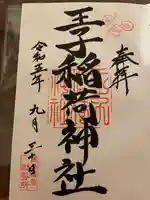 奉拝
王子稲荷神社
令和五年九月三十日